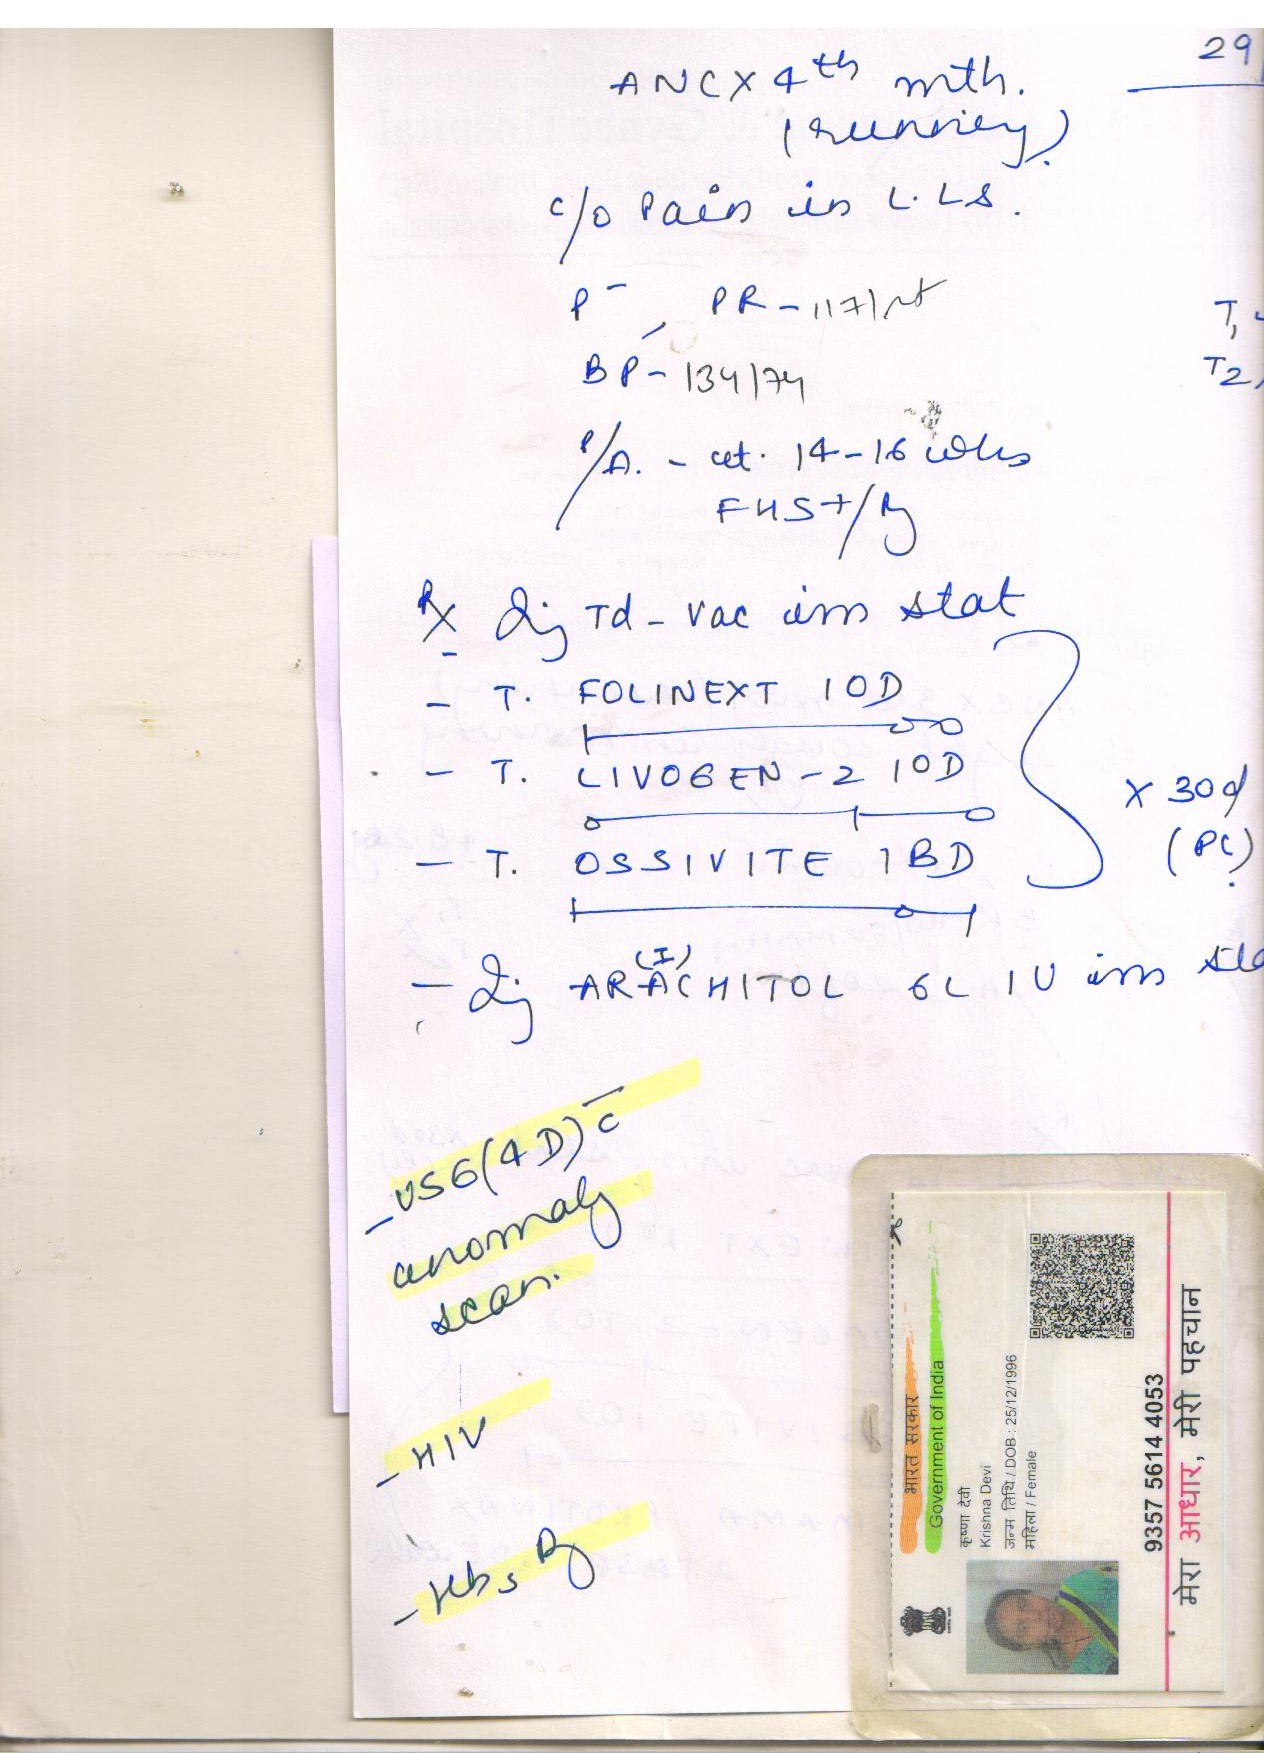 29
ANC X 4th mth.
(running).
c/o Pain in L.LS.
P - , PR - 117/mt
T1
BP - 134/74
T2,
P/A. - ut. 14-16 wks
FHS+/R
Rx Inj Td-vac im stat
- T. FOLINEXT 1OD
- T. LIVOGEN-Z 1OD
X 30d
- T. OSSIVITE 1BD
(PC)
(I)
- Inj ARACHITOL 6L IU im sta
- USG (4D) c̄
anomaly
scan.
- HIV
- HbsAg
भारत सरकार
Government of India
कृष्णा देवी
Krishna Devi
जन्म तिथि / DOB : 25/12/1996
महिला / Female
9357 5614 4053
मेरा आधार, मेरी पहचान